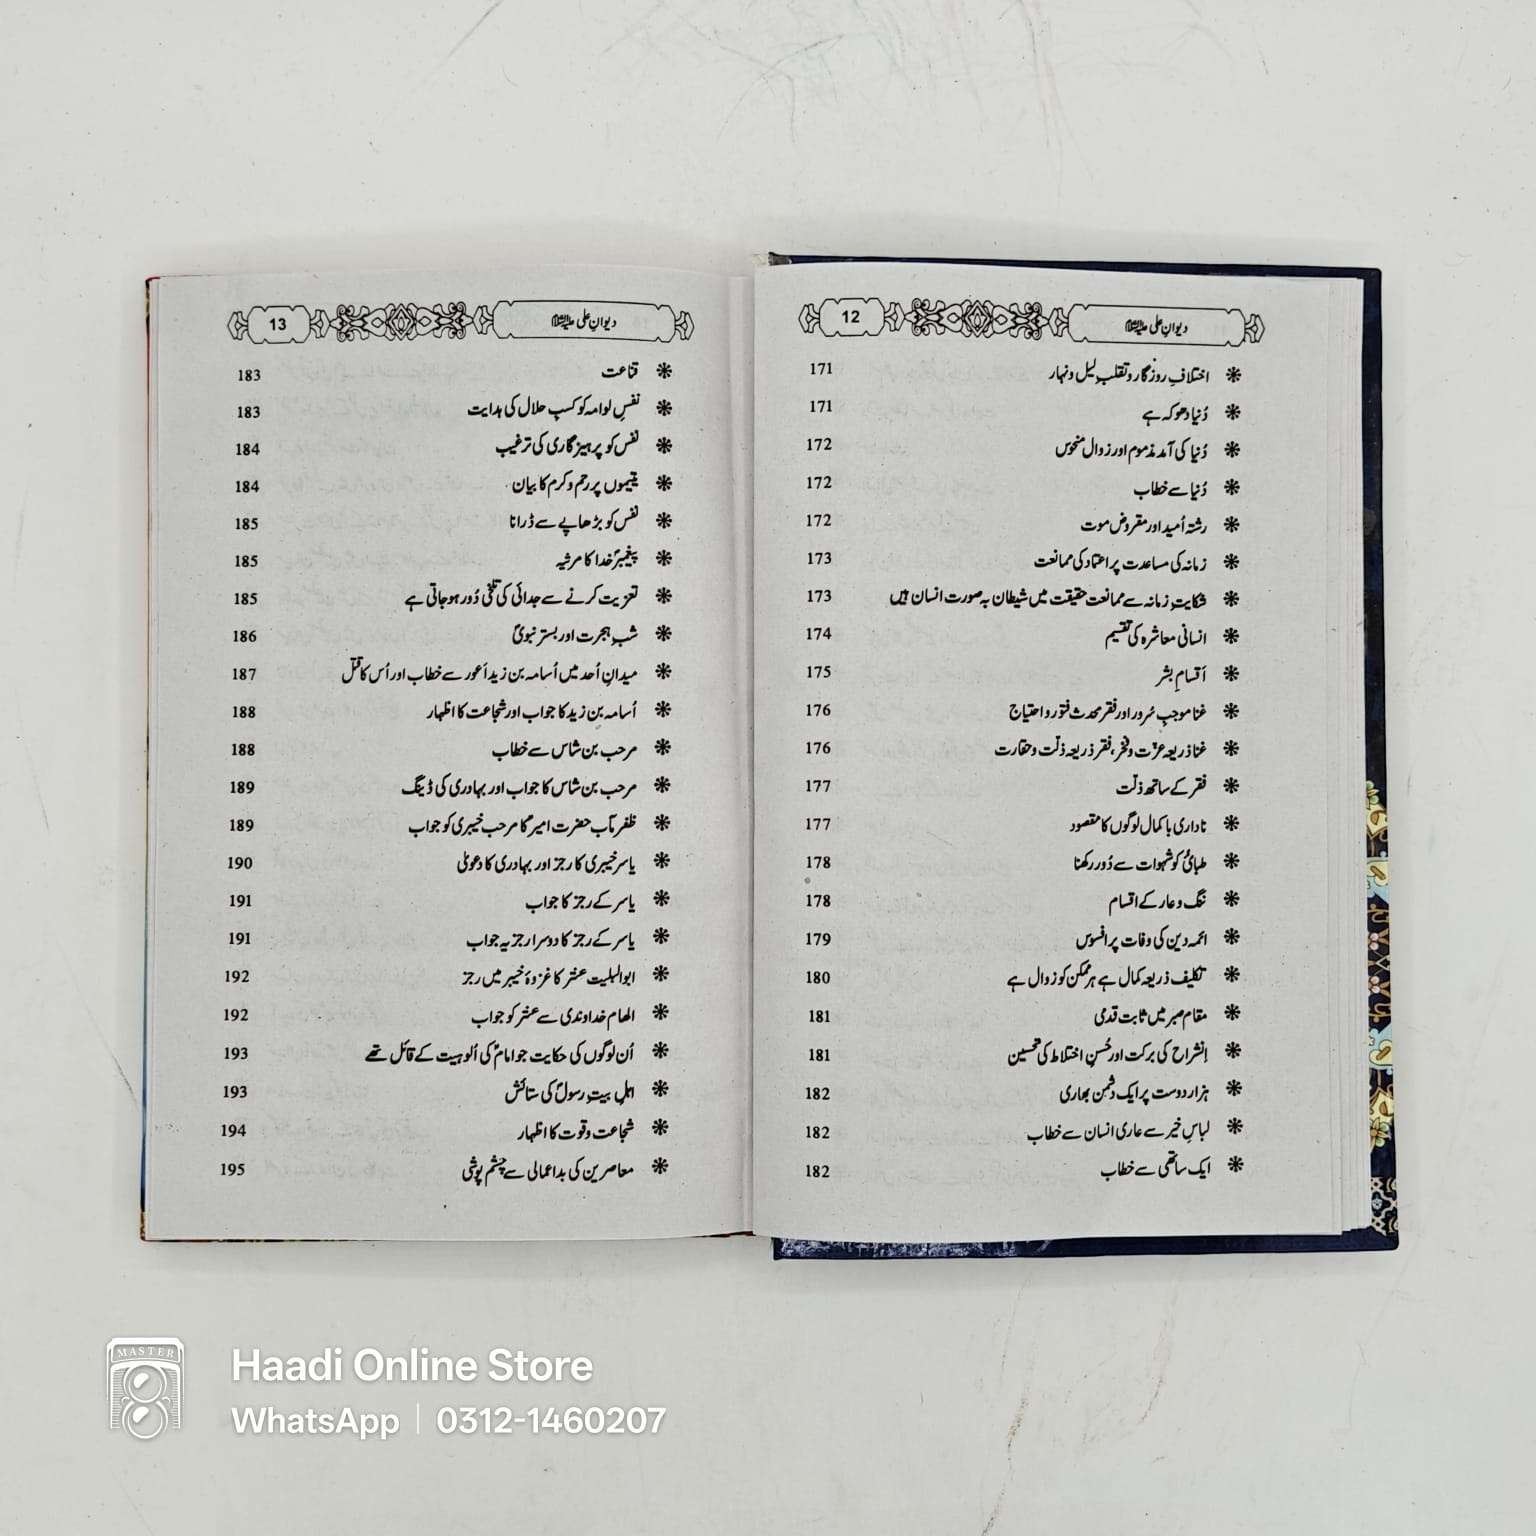 دیوانِ علی علیہ السلام 12
اختلافِ روزگار و تقلبِ لیل و نہار 171
دُنیا دھوکہ ہے 171
دُنیا کی آمد مذموم اور زوال منحوس 172
دُنیا سے خطاب 172
رشتہ اُمید اور مقروض موت 172
زمانہ کی مساعدت پر اعتماد کی ممانعت 173
شکایتِ زمانہ سے ممانعت حقیقت میں شیطان بہ صورت انسان ہیں 173
انسانی معاشرہ کی تقسیم 174
اَقسامِ بشر 175
غنا موجبِ سُرور اور فقر محدث فتور و احتیاج 176
غنا ذریعہ عزّت و فخر، فقر ذریعہ ذلّت و حقارت 176
فقر کے ساتھ ذلّت 177
ناداری باکمال لوگوں کا مقصود 177
طبائع کو شہوات سے دُور رکھنا 178
ننگ و عار کے اقسام 178
ائمہ دین کی وفات پر افسوس 179
تکلیف ذریعہ کمال ہے ہر ممکن کو زوال ہے 180
مقام صبر میں ثابت قدمی 181
اِنشراح کی برکت اور حُسنِ اختلاط کی تحسین 181
ہزار دوست پر ایک دشمن بھاری 182
لباسِ خیر سے عاری انسان سے خطاب 182
ایک ساتھی سے خطاب 182
دیوانِ علی علیہ السلام 13
قناعت 183
نفسِ لوامہ کو کسبِ حلال کی ہدایت 183
نفس کو پرہیزگاری کی ترغیب 184
یتیموں پر رحم و کرم کا بیان 184
نفس کو بڑھاپے سے ڈرانا 185
پیغمبرِؐ خدا کا مرثیہ 185
تعزیت کرنے سے جدائی کی تلخی دُور ہو جاتی ہے 185
شبِ ہجرت اور بستر نبویؐ 186
میدانِ اُحد میں اُسامہ بن زید اَعور سے خطاب اور اُس کا قتل 187
اُسامہ بن زید کا جواب اور شجاعت کا اظہار 188
مرحب بن شاس سے خطاب 188
مرحب بن شاس کا جواب اور بہادری کی ڈینگ 189
ظفر مآب حضرت امیرؑ کا مرحب خیبری کو جواب 189
یاسر خیبری کا رجز اور بہادری کا دعویٰ 190
یاسر کے رجز کا جواب 191
یاسر کے رجز کا دوسرا رجزیہ جواب 191
ابوالبلیت عنتر کا غزوۂ خیبر میں رجز 192
الھام خداوندی سے عنتر کو جواب 192
اُن لوگوں کی حکایت جو امامؑ کی اُلوہیت کے قائل تھے 193
اہلِ بیتِ رسولؐ کی ستائش 193
شجاعت و قوت کا اظہار 194
معاصرین کی بداعمالی سے چشم پوشی 195
MASTER
Haadi Online Store
WhatsApp | 0312-1460207